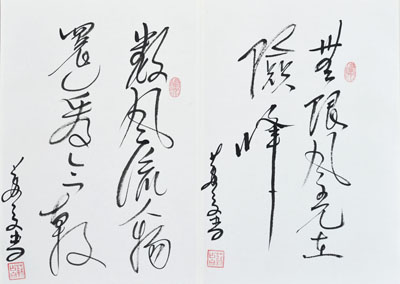 無限风光在
險峰
数风流人物
還看今朝